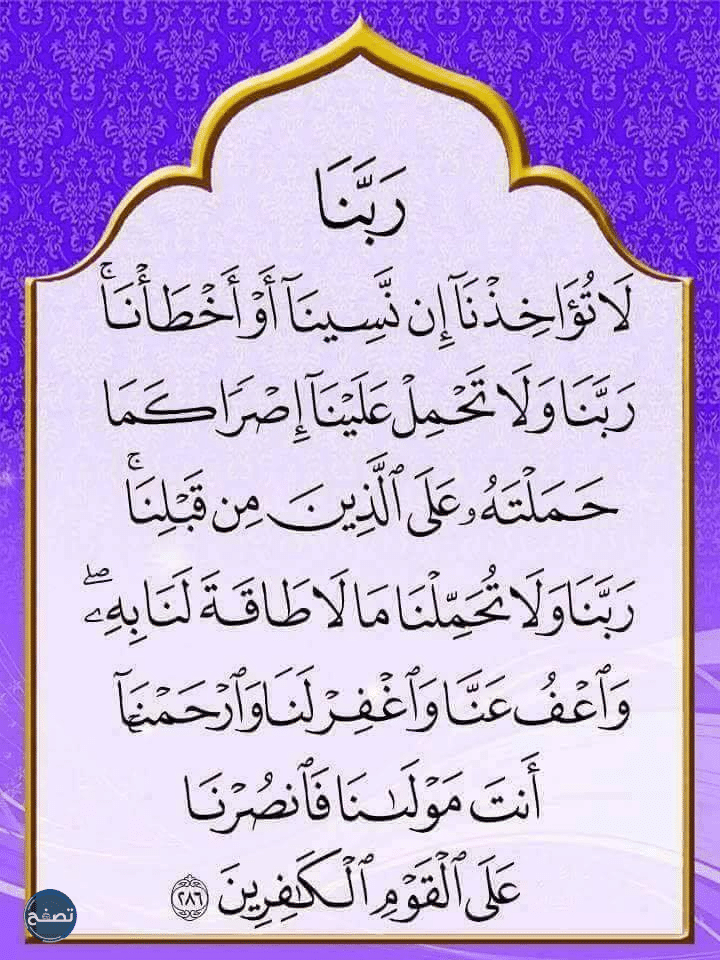 رَبَّنَا
لَا تُؤَاخِذْنَآ إِن نَّسِينَآ أَوْ أَخْطَأْنَا ۚ
رَبَّنَا وَلَا تَحْمِلْ عَلَيْنَآ إِصْرًا كَمَا
حَمَلْتَهُۥ عَلَى ٱلَّذِينَ مِن قَبْلِنَا ۚ
رَبَّنَا وَلَا تُحَمِّلْنَا مَا لَا طَاقَةَ لَنَا بِهِۦ ۖ
وَٱعْفُ عَنَّا وَٱغْفِرْ لَنَا وَٱرْحَمْنَآ ۚ
أَنتَ مَوْلَىٰنَا فَٱنصُرْنَا
عَلَى ٱلْقَوْمِ ٱلْكَٰفِرِينَ ٢٨٦
تصفح